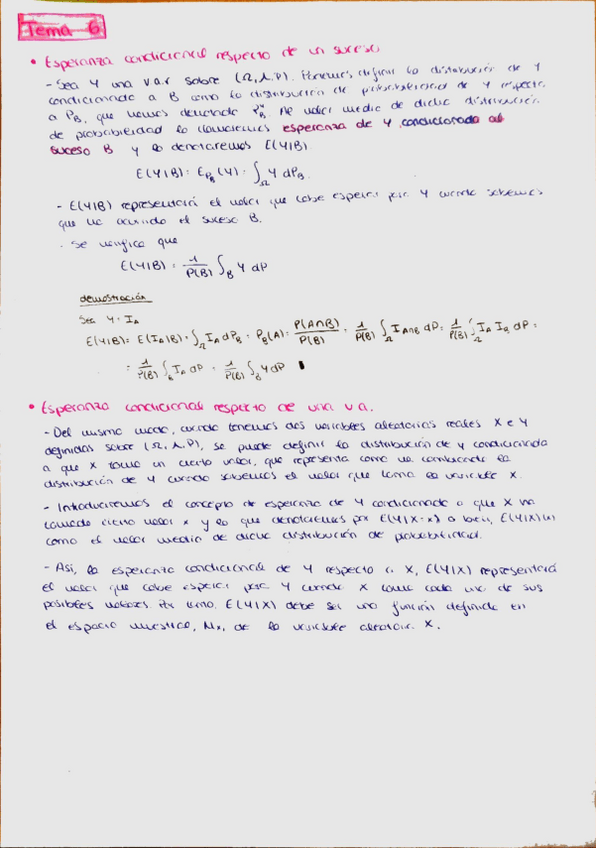 Tema 6
• Esperanza condicional respecto de un suceso
- Sea Y una v.a.r sobre (Ω, A, P). Podemos definir la distribución de Y
condicionada a B como la distribución de probabilidad de Y respecto
a P_B, que hemos denotado P_B^Y. Al valor medio de dicha distribución
de probabilidad lo llamaremos esperanza de Y condicionada al
suceso B y lo denotaremos E(Y|B).
E(Y|B) = E_{P_B}(Y) = ∫_Ω Y dP_B.
- E(Y|B) representará el valor que cabe esperar para Y cuando sabemos
que ha ocurrido el suceso B.
- Se verifica que
E(Y|B) = 1/P(B) ∫_B Y dP
demostración
Sea Y = I_A
E(Y|B) = E(I_A|B) = ∫_Ω I_A dP_B = P_B(A) = P(A∩B)/P(B) = 1/P(B) ∫_Ω I_{A∩B} dP = 1/P(B) ∫_Ω I_A I_B dP =
= 1/P(B) ∫_B I_A dP = 1/P(B) ∫_B Y dP ∎
• Esperanza condicional respecto de una v.a.
- Del mismo modo, cuando tenemos dos variables aleatorias reales X e Y
definidas sobre (Ω, A, P), se puede definir la distribución de Y condicionada
a que X tome un cierto valor, que representa como ha cambiado la
distribución de Y cuando sabemos el valor que toma la variable X.
- Introduciremos el concepto de esperanza de Y condicionada a que X ha
tomado cierto valor x y lo que denotaremos por E(Y|X=x) o bien, E(Y|X)(x)
como el valor medio de dicha distribución de probabilidad.
- Así, la esperanza condicional de Y respecto a X, E(Y|X) representará
el valor que cabe esperar para Y cuando X tome cada uno de sus
posibles valores. Por tanto, E(Y|X) debe ser una función definida en
el espacio muestral, M_x, de la variable aleatoria X.